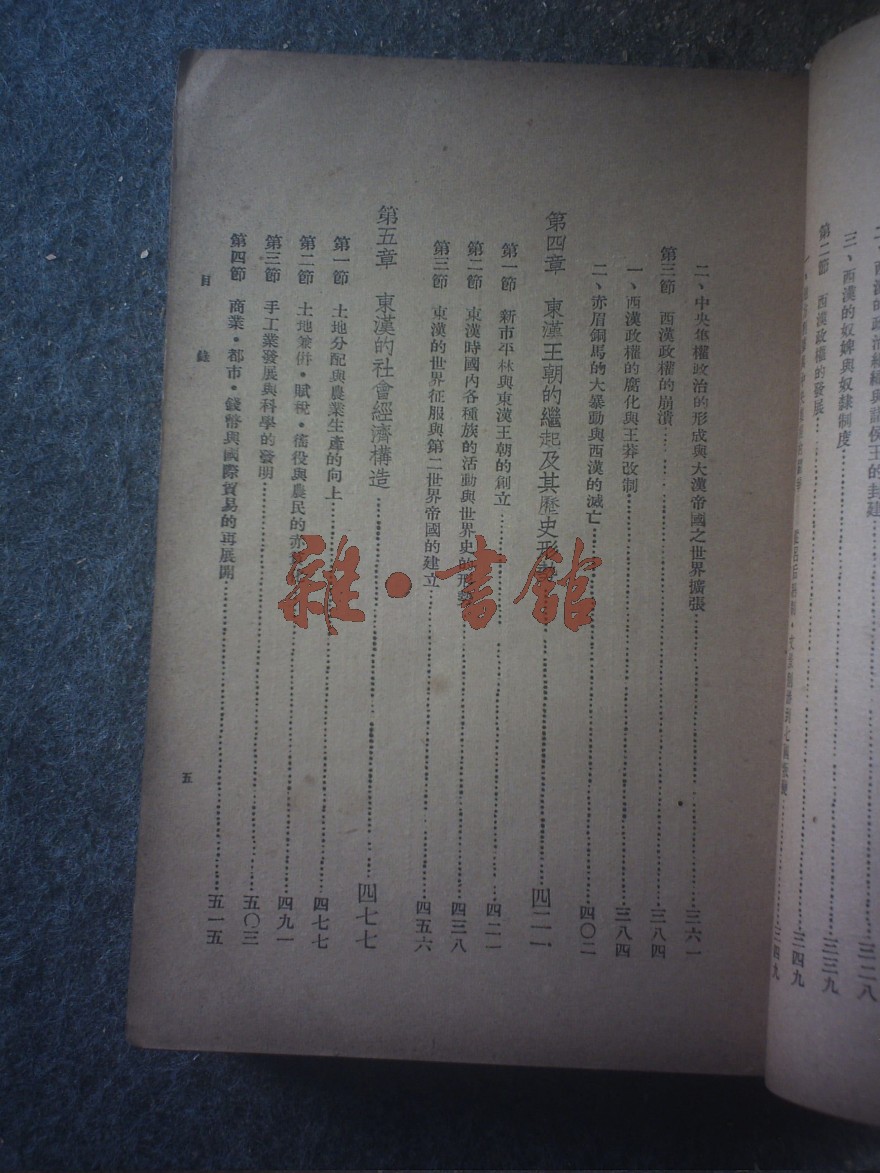 二、西漢的政治組織與諸侯王的封建……三二八
三、西漢的奴婢與奴隸制度……三三九
第二節 西漢政權的發展……三四九
三四九
二、中央集權政治的形成與大漢帝國之世界擴張……三六一
第三節 西漢政權的崩潰……三八四
一、西漢政權的腐化與王莽改制……三八四
二、赤眉銅馬的大暴動與西漢的滅亡……四〇二
第四章 東漢王朝的繼起及其歷史形……四二一
第一節 新市平林與東漢王朝的創立……四二一
第二節 東漢時國內各種族的活動與世界史的形勢……四三八
第三節 東漢的世界征服與第二世界帝國的建立……四五六
第五章 東漢的社會經濟構造……四七七
第一節 土地分配與農業生產的向上……四七七
第二節 土地兼併・賦稅・徭役與農民的赤……四九一
第三節 手工業發展與科學的發明……五〇三
第四節 商業・都市・錢幣與國際貿易的再展開……五一五
目 錄
五
雜・書館